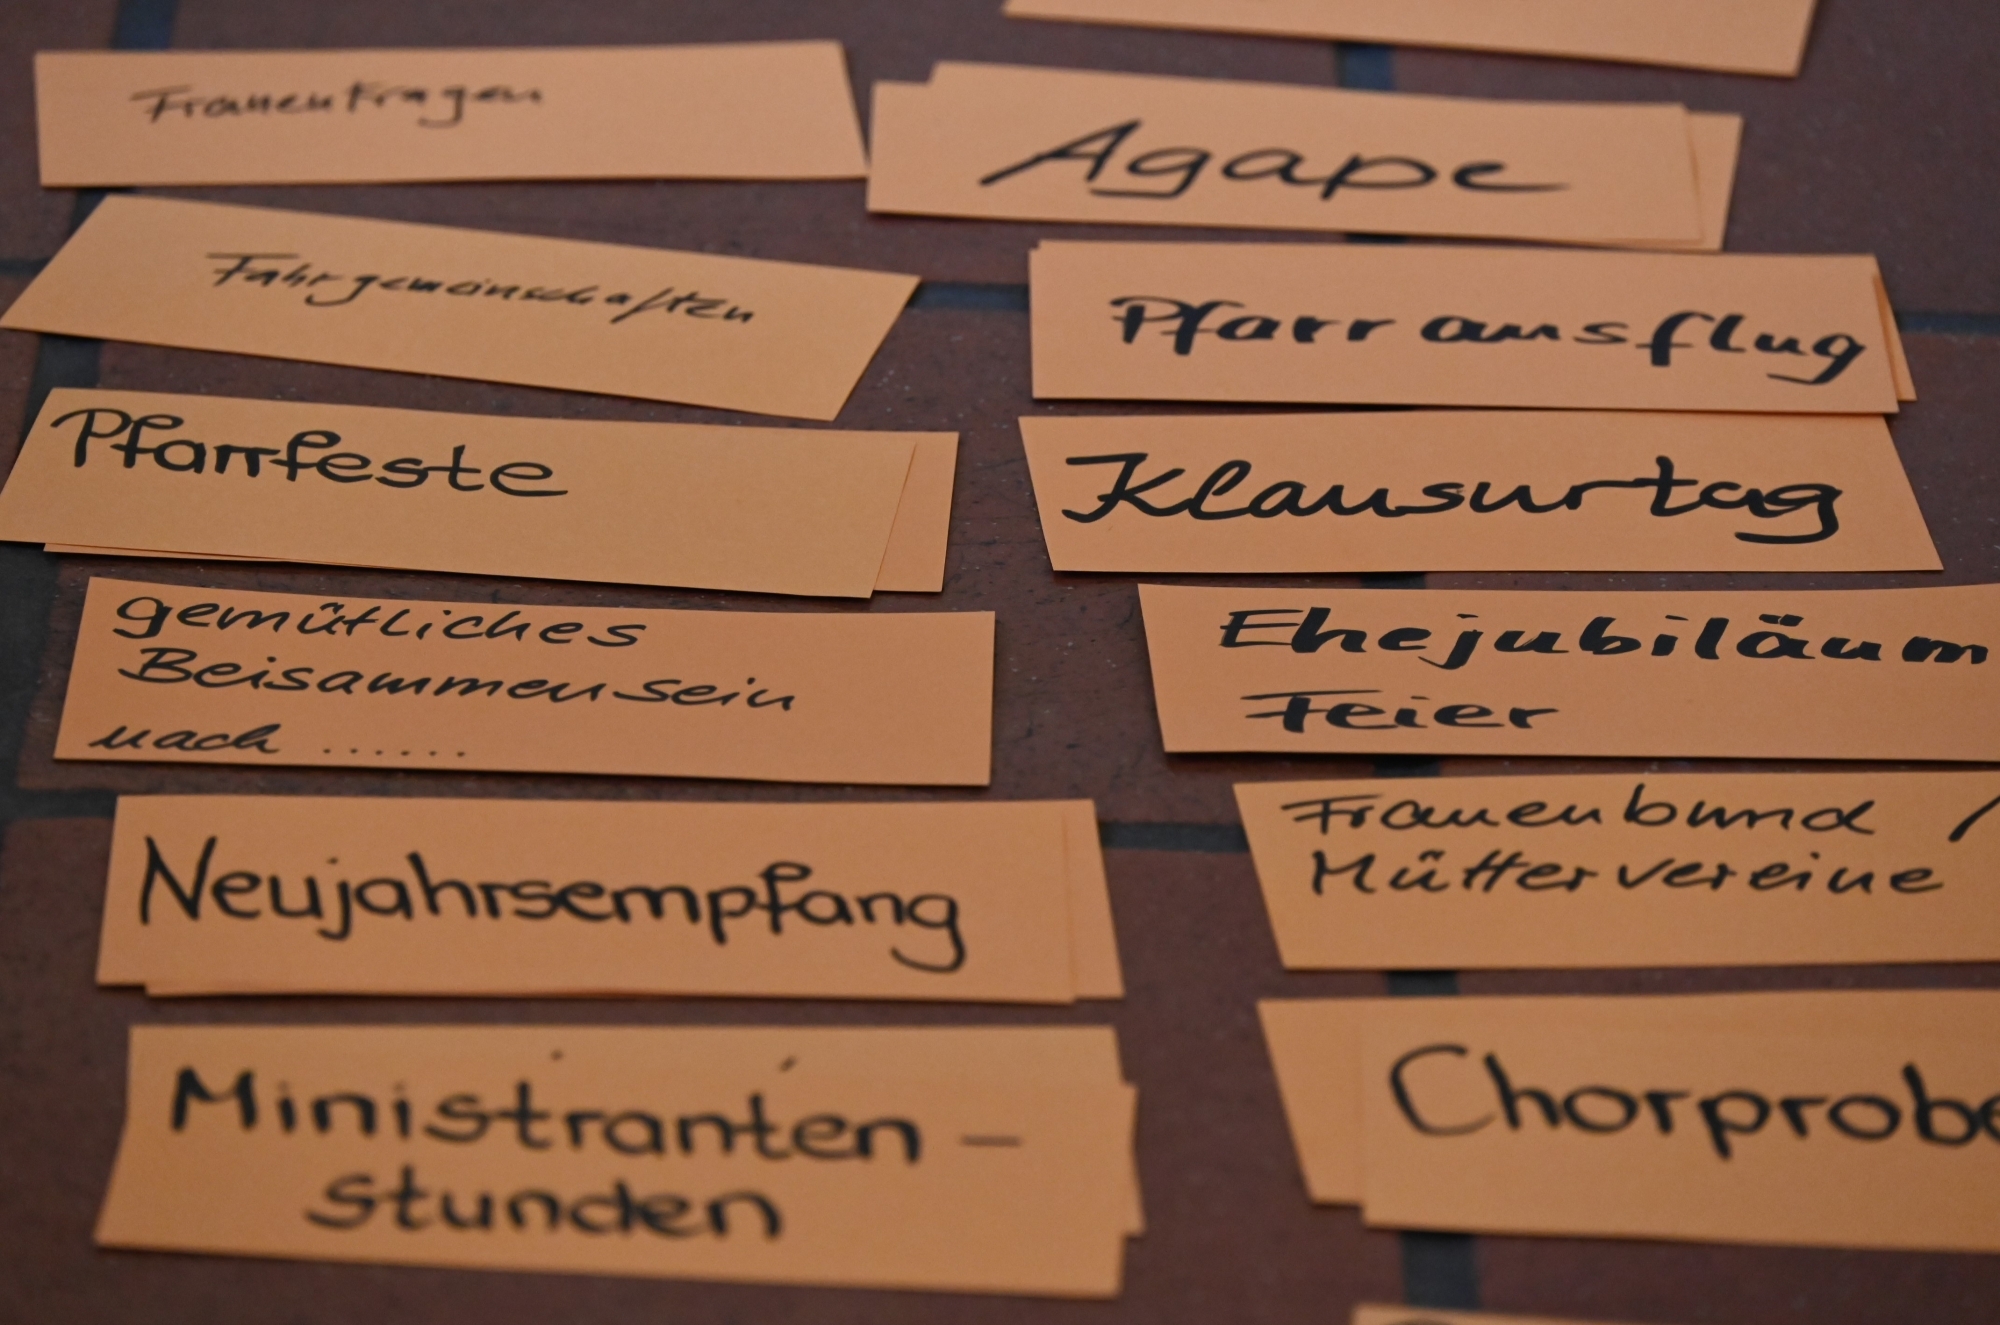 Frauenfragen
Agape
Fahrgemeinschaften
Pfarrausflug
Pfarrfeste
Klausurtag
gemütliches
Beisammensein
nach ......
Ehejubiläum
Feier
Neujahrsempfang
Frauenbund /
Müttervereine
Ministranten -
stunden
Chorprobe